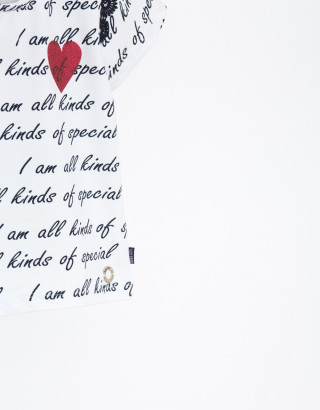 kinds of special
I am all kinds
kinds of special
kinds of special
am all kinds of
kinds of special
I am all kinds
kinds of special
I am all kinds of
kinds of special
I am all kinds of